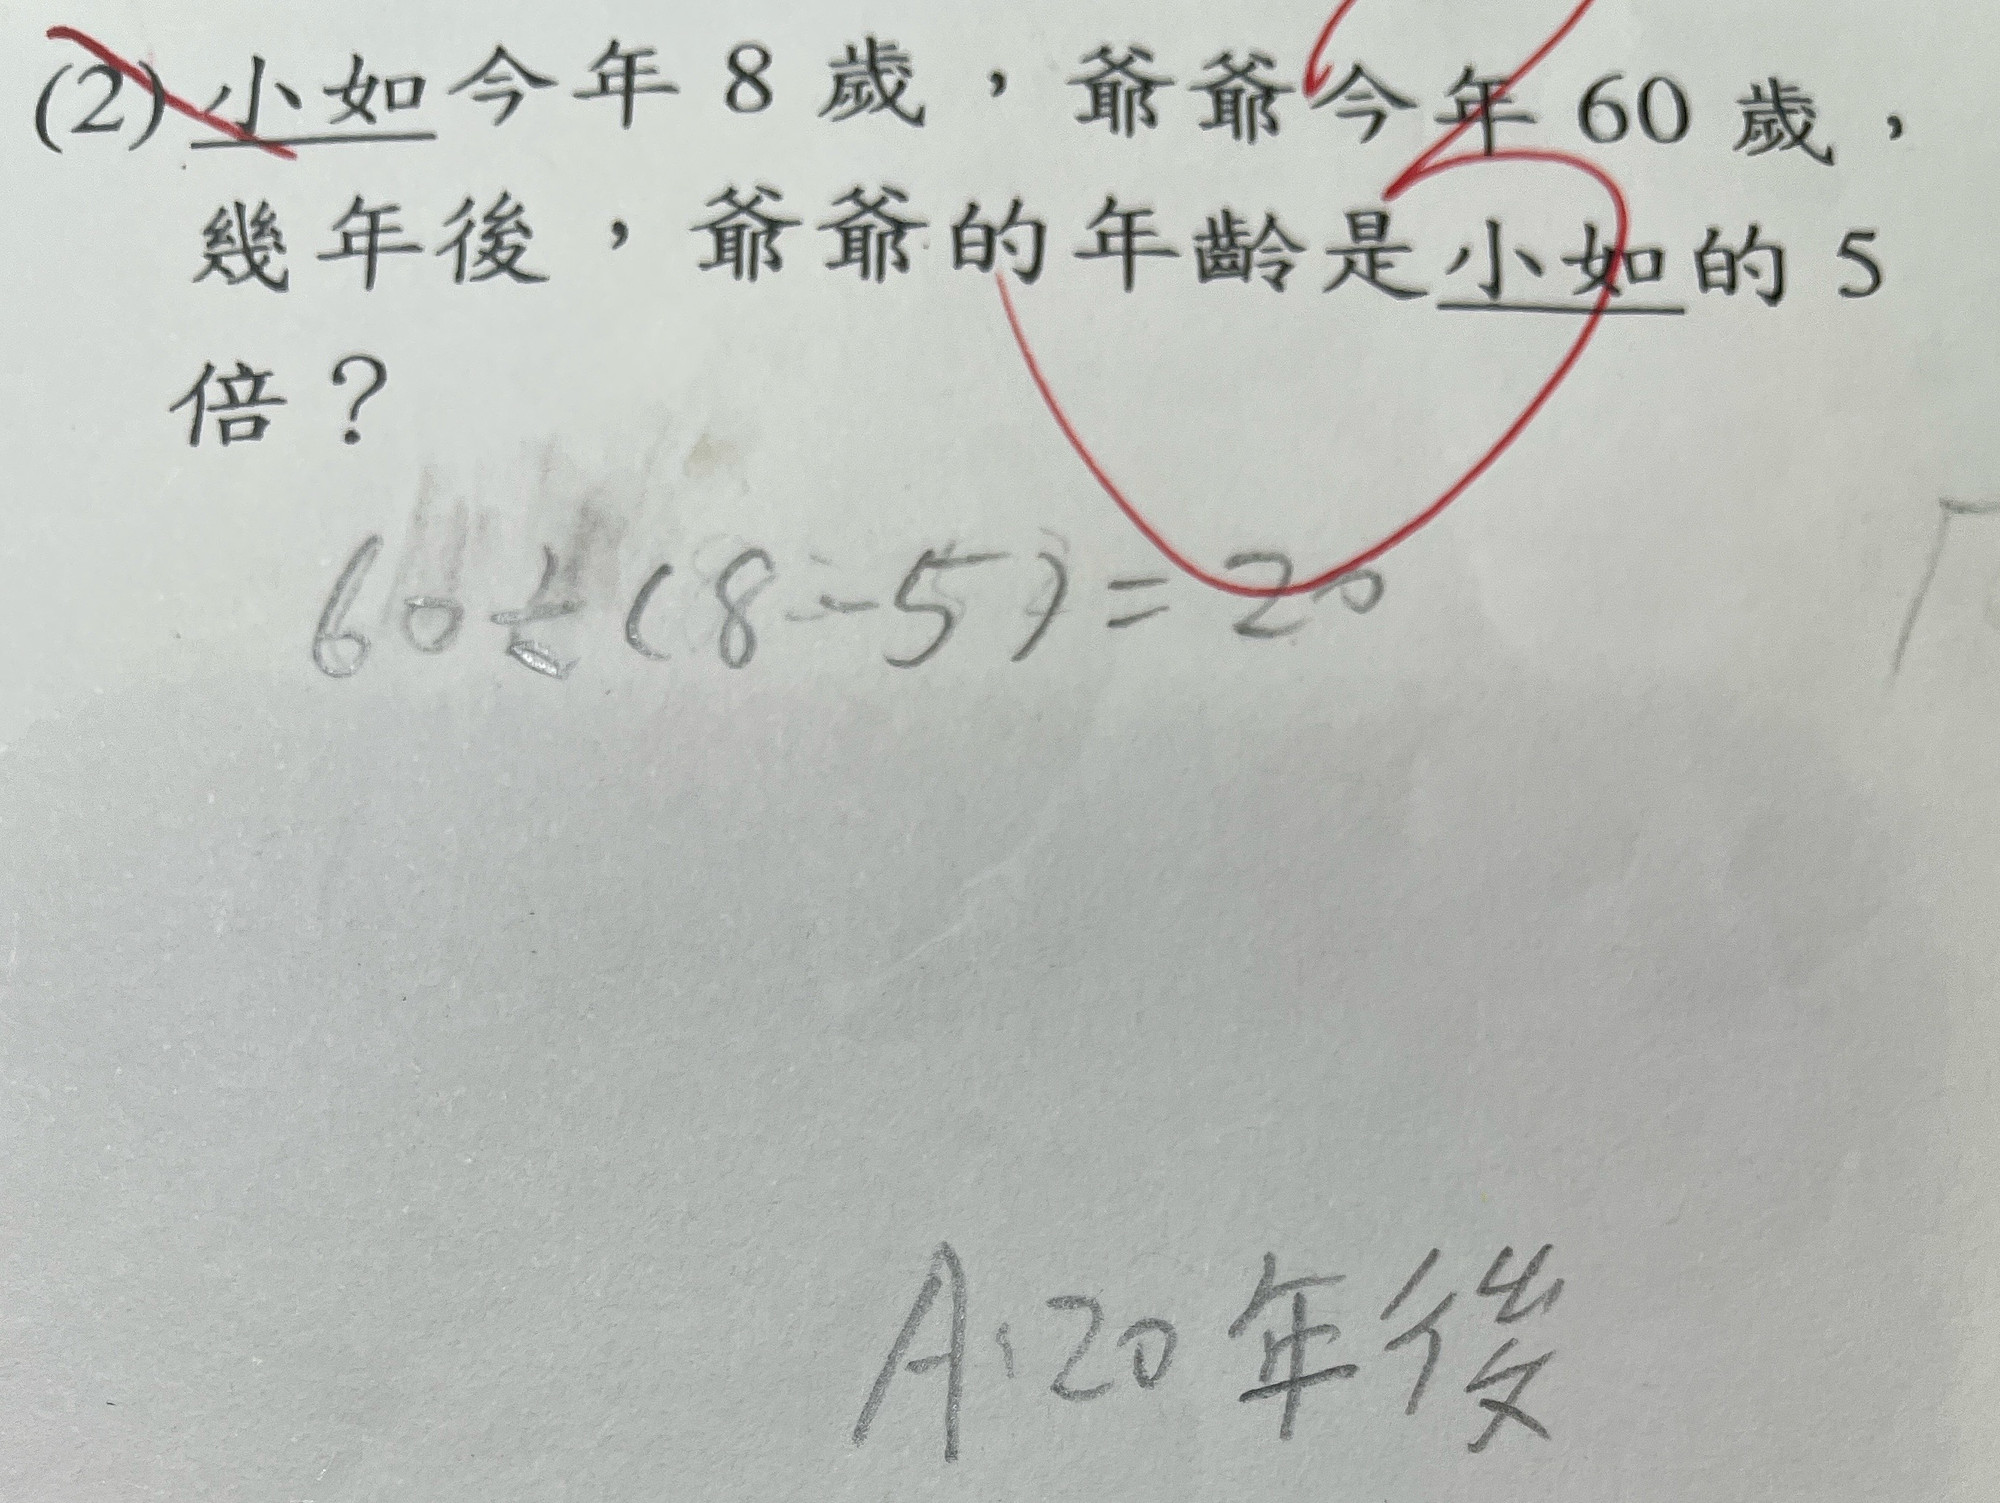 (2) 小如今年 8 歲，爺爺今年 60 歲，
幾年後，爺爺的年齡是小如的 5
倍？
60÷(8-5)=20
A:20年後